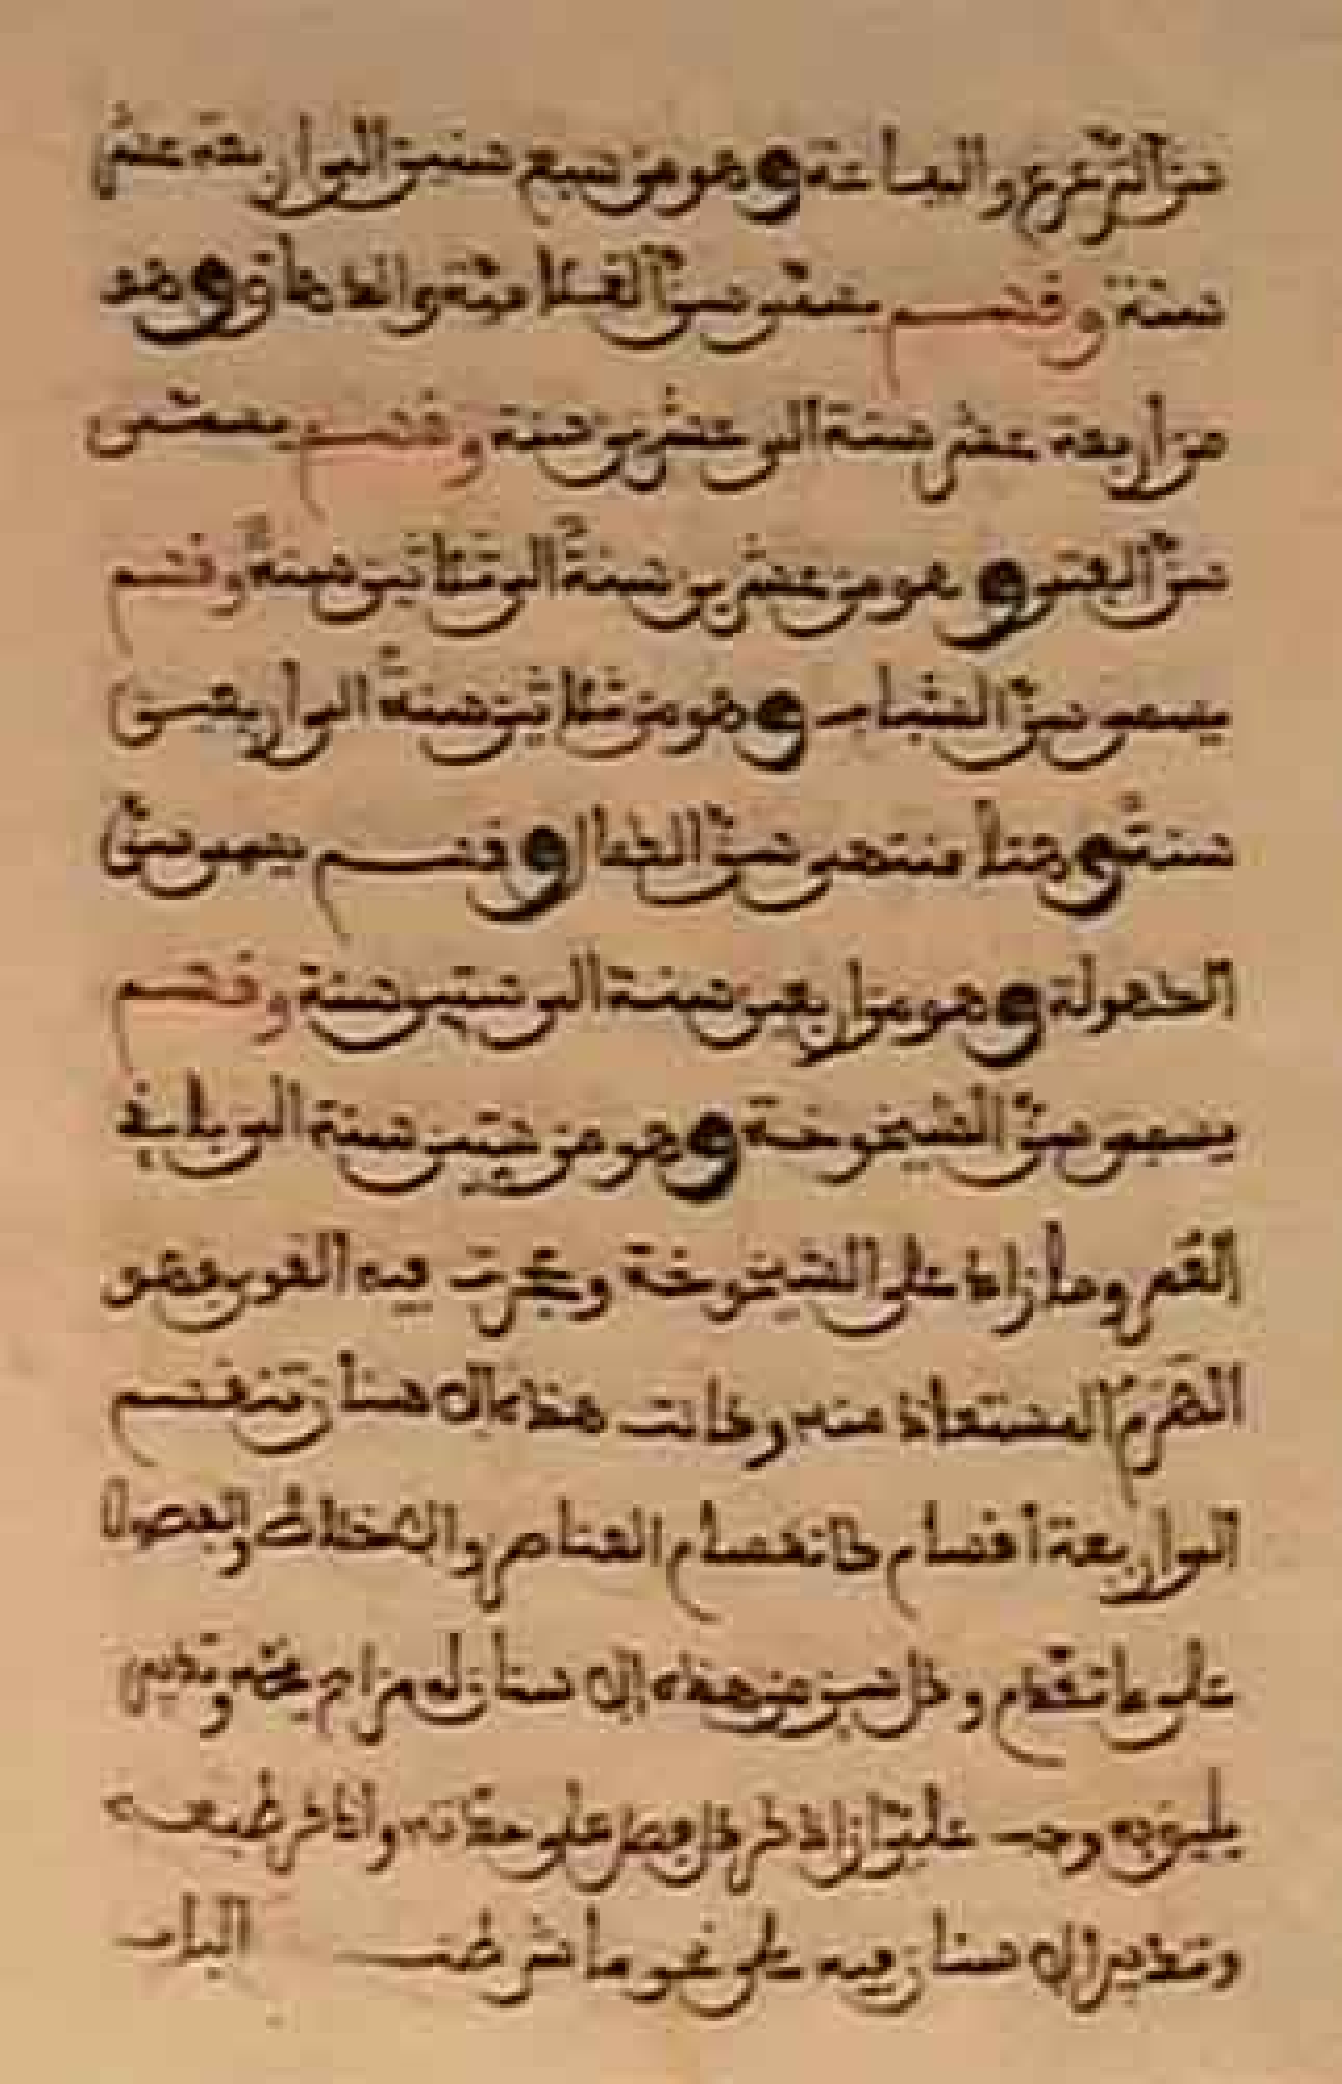 سن الترعرع واليفاعة وهو من سبع سنين الى اربعة عشر
سنة وقسم يسمى سن الغلامية والحلم وهو
من اربعة عشر سنة الى عشرين سنة وقسم يسمى
سن الفتى وهو من عشرين سنة الى ثلاثين سنة وقسم
يسمى سن الشباب وهو من ثلاثين سنة الى اربعين
سنة وهذا منتهى سن الكمال وقسم يسمى سن
الكهولة وهو من اربعين سنة الى ستين سنة وقسم
يسمى سن الشيخوخة وهو من ستين سنة الى باقي
العمر وما زاد على الشيخوخة وعجزت فيه القوى فهو
الهرم المستعاذ منه وكانت هذه الاسنان تنقسم
الى اربعة أقسام كانقسام العناصر والاخلاط والفصول
على ما تقدم وكل سن من هذه الاسنان له مزاج يخصه وتدبير
يليق به وجب علينا ان اذكر كل فصل على حدته واذكر طبعه
وتدبير الاسنان فيه على نحو ما شرطت الباب